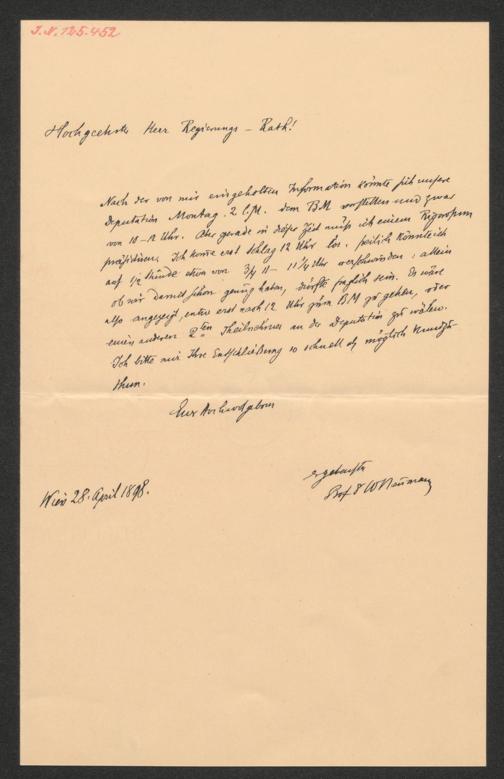 J.N. 125.452
Hochgeehrter Herr Regierungs-Rath!
Nach der von mir eingeholten Information könnte sich unsere
Deputation Montag 2. l.M. dem BM vorstellen und zwar
von 10-12 Uhr. Aber gerade in dieser Zeit muß ich einem Rigorosum
präsidiren. Ich komme erst Schlag 12 Uhr los, freilich könnte ich
auf 1/2 Stunde etwa von 3/4 11 - 11 1/4 Uhr verschwinden; allein
ob wir damit schon genug haben, dürfte fraglich sein. Es wäre
also angezeigt, entweder erst nach 12 Uhr zum BM zu gehen, oder
einen anderen 2ten Theilnehmer an der Deputation zu wählen.
Ich bitte mir Ihre Entschließung so schnell als möglich kundzu-
thun.
Euer Hochwolgeboren
ergebenster
Wien 28. April 1898.
Prof. Dr W Neumann